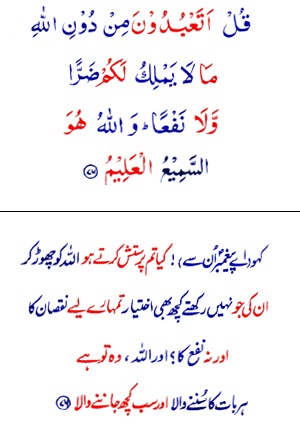 قُلْ اَتَعْبُدُوْنَ مِنْ دُوْنِ اللّٰهِ
مَا لَا يَمْلِكُ لَكُمْ ضَرًّا
وَّلَا نَفْعًا ؕ وَ اللّٰهُ هُوَ
السَّمِيْعُ الْعَلِيْمُ ﴿۷۶﴾
کہو (اے پیغمبرؐ اُن سے)! کیا تم پرستش کرتے ہو اللہ کو چھوڑ کر
ان کی جو نہیں رکھتے کچھ بھی اختیار تمہارے لیے نقصان کا
اور نہ نفع کا؟ اور اللہ، وہ تو ہے
ہر بات کا سُننے والا اور سب کچھ جاننے والا ﴿۷۶﴾